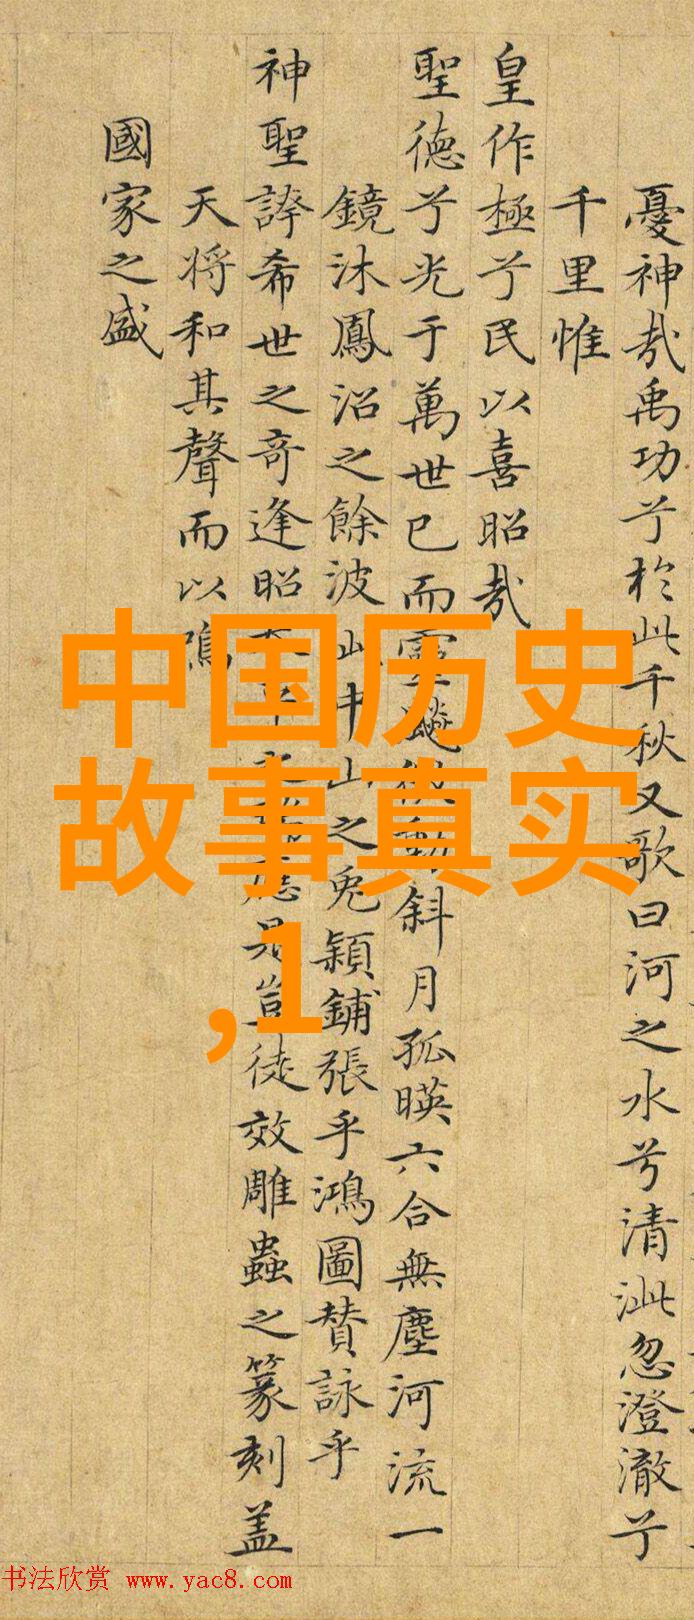 憂神哉禹功兮於此千秋又歌曰河之水兮清泚忽澄澈兮
千里惟
皇作極兮民以喜昭哉
聖德兮光于萬世已而靈飈微動斜月孤暎六合無塵河流一
鏡沐鳳沼之餘波山之兔穎鋪張乎鴻圖賛詠乎
神聖誇希世之奇逢昭應是豈徒效雕蟲之篆刻盖
天将和其聲而以鳴
國家之盛
中国历史
故事真实
,1
书法欣赏 www.yac8.com